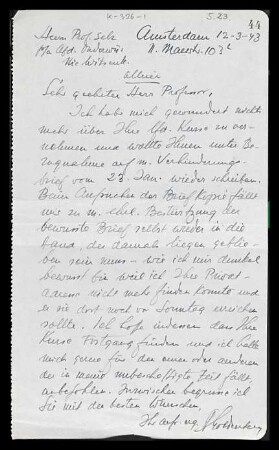 K-326-1 5.23 44
Herrn Prof. Selz Amsterdam 12-3-43
p/a Afd. Onderwijs N. Maasstr. 103
Nic. Witsenk.
alhier
Sehr geehrter Herr Professor,
Ich habe mich gewundert nichts
mehr über Ihre Kurse zu ver-
nehmen und wollte Ihnen unter Be-
zugnahme auf m. Verhinderungs-
brief vom 23. Jan. wieder schreiben.
Beim Aufsuchen der Brief Kopie fällt
mir zu m. ehrl. Bestürzung der
bewusste Brief selbst wieder in die
Hand, der damals liegen geblie-
ben sein muss - wie ich mir dunkel
bewusst bin weil ich Ihre Privat-
adresse nicht mehr finden konnte und
er Sie dort noch vor Sonntag erreichen
sollte. Ich hoffe indessen dass Ihre
Kurse Fortgang finden und ich halte
mich gerne für den einen oder anderen
der in meine unbeschäftigte Zeit fällt
anbefohlen. Inzwischen begrüsse ich
Sie mit den besten Wünschen,
Ihr